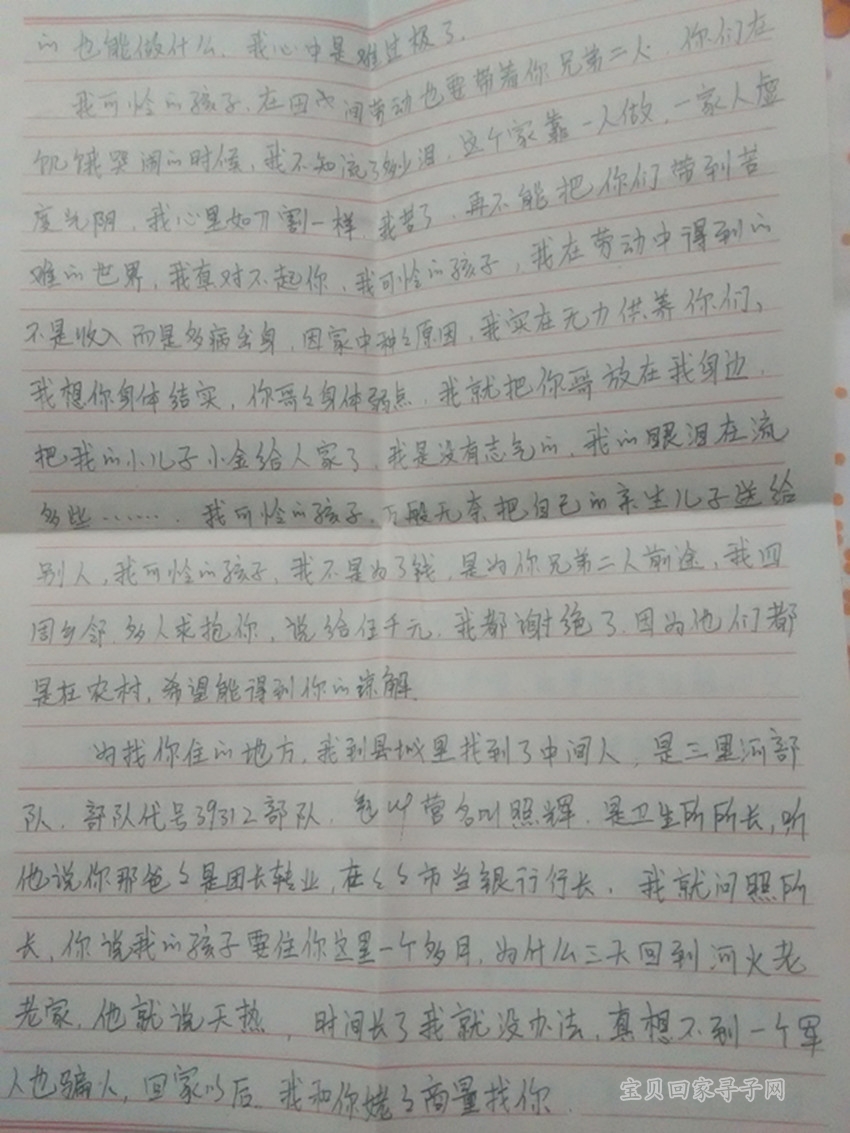 的也能做什么，我心中是难过极了。
我可怜的孩子，在田间劳动也要带着你兄弟二人，你们在
饥饿哭闹的时候，我不知流了多少泪，这个家靠一人做，一家人虚
度光阴，我心里如刀割一样，我苦了，再不能把你们带到苦
难的世界，我真对不起你，我可怜的孩子，我在劳动中得到的
不是收入而是多病缠身，因家中种々原因，我实在无力供养你们。
我想你身体结实，你哥々身体弱点，我就把你哥放在我身边，
把我的小儿子小金给人家了，我是没有志气的，我的眼泪在流
多些……，我可怜的孩子，万般无奈把自己的亲生儿子送给
别人，我可怜的孩子，我不是为了钱，是为你兄弟二人前途，我四
周乡邻，多人求抱你，说给任千元，我都谢绝了，因为他们都
是在农村，希望能得到你的谅解。
为找你住的地方，我到县城里找到了中间人，是三里河部
队，部队代号39312部队，营名叫照辉，是卫生所所长，听
他说你那爸々是团长转业，在々々市当银行行长，我就问照所
长，你说我的孩子要住你这里一个多月，为什么三天回到河火老
老家，他就说天热，时间长了我就没办法，真想不到一个军
人也骗人，回家以后，我和你姥々商量找你。
宝贝回家寻子网